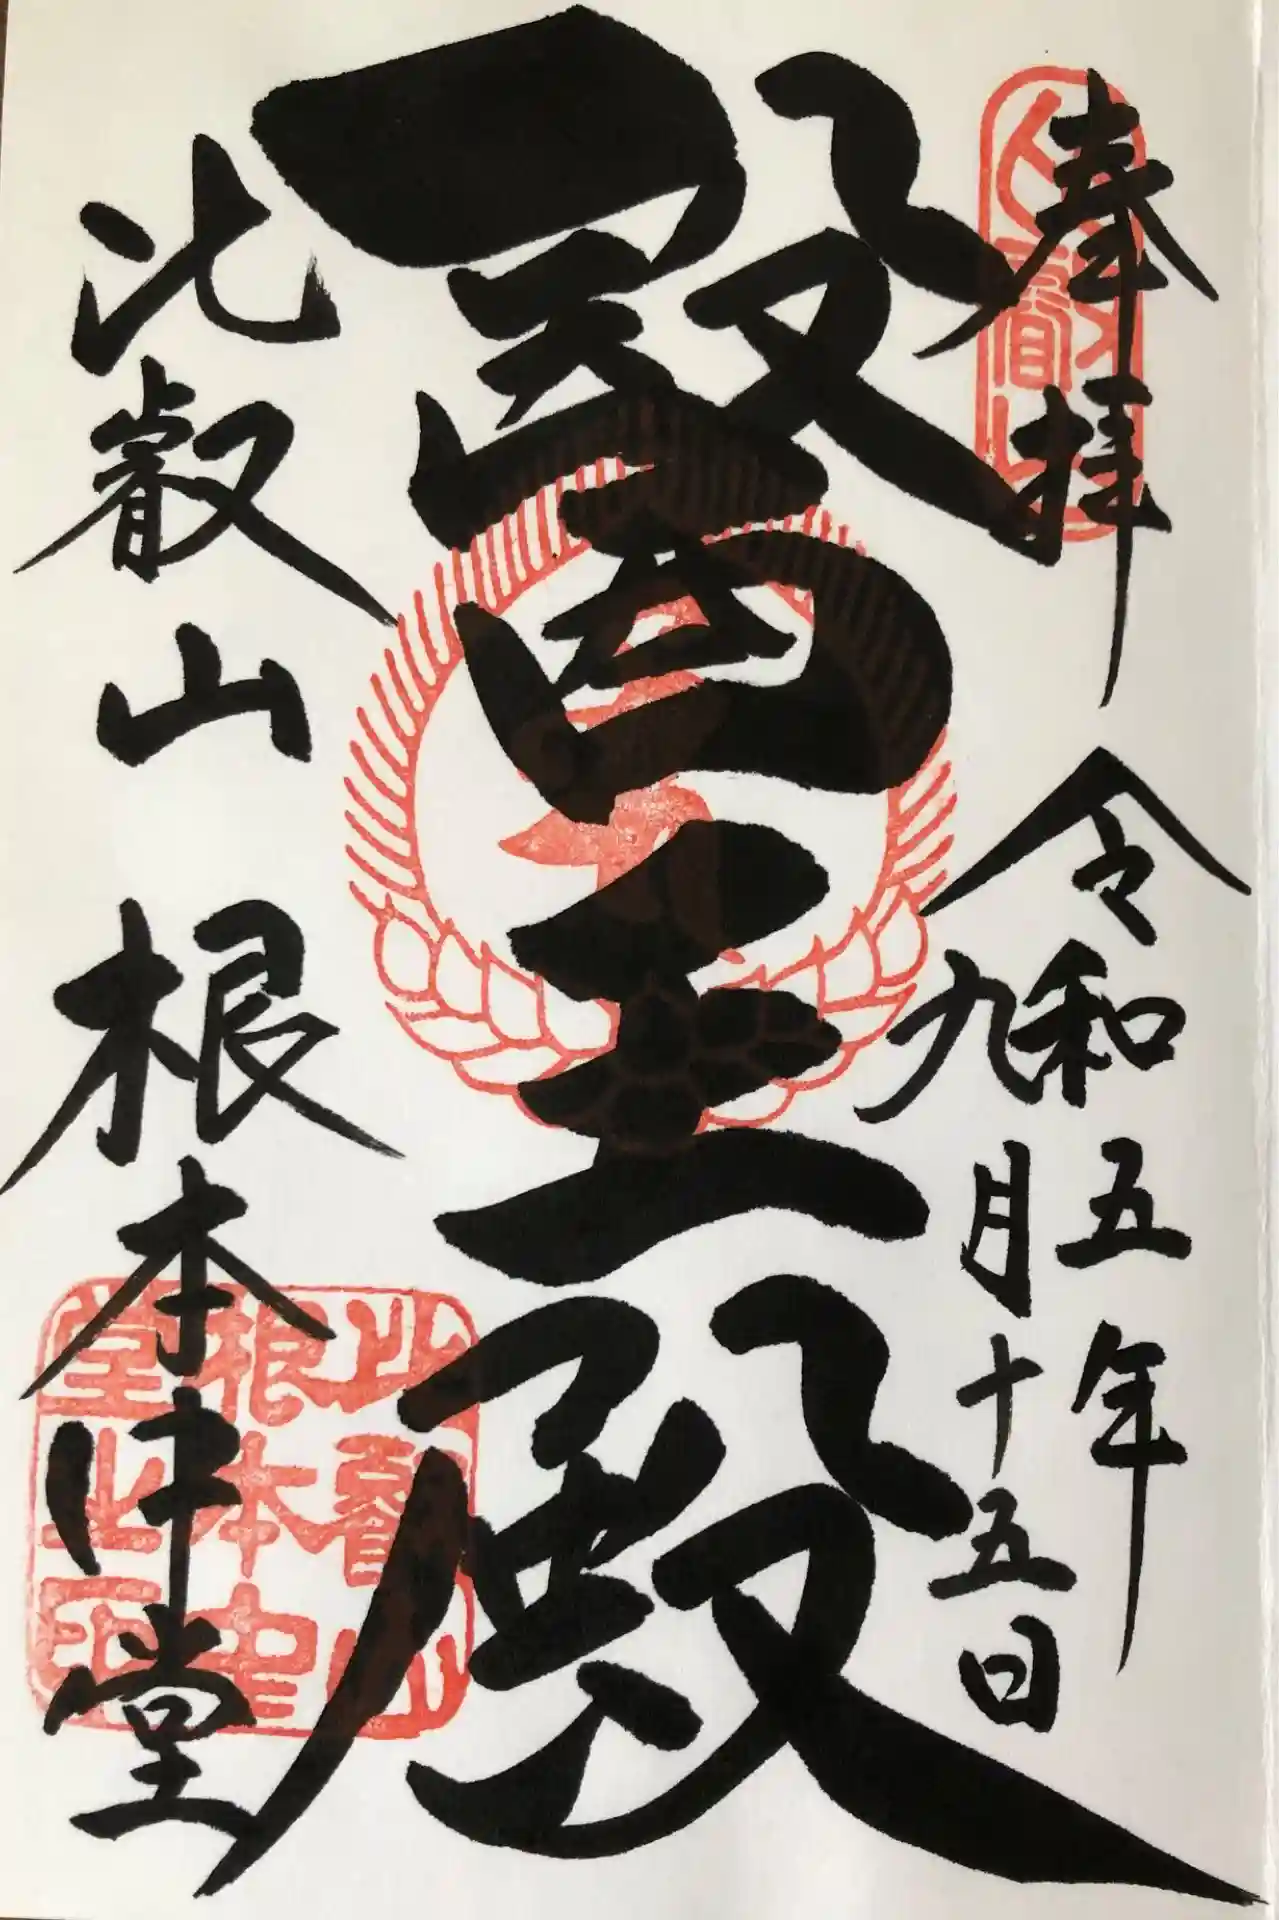 奉拝
令和五年
九月十五日
醫王殿
比叡山 根本中堂
比叡山
根本中
堂之印